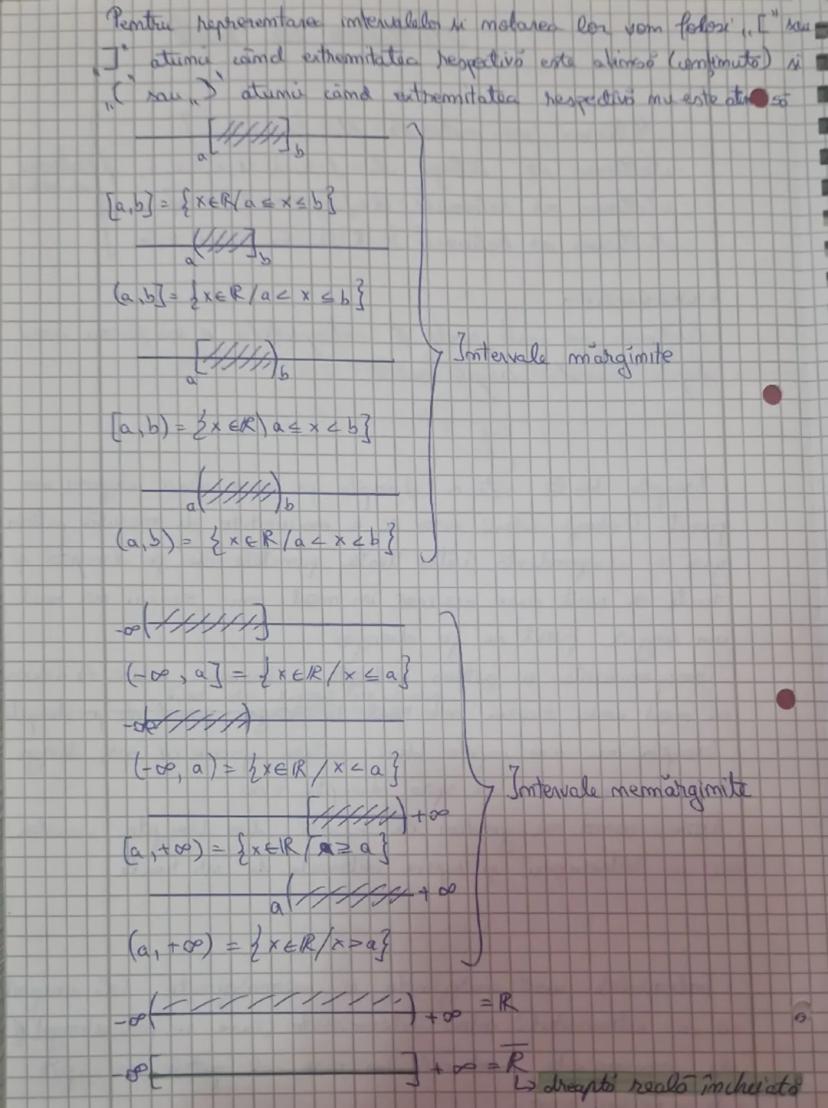 Pentru reprezentarea intervalelor și notarea lor vom folosi „[" sau
„]" atunci când extremitatea respectivă este atinsă (conținută) și
„(" sau „)" atunci când extremitatea respectivă nu este atinsă
a [ ] b
[a,b] = {x∈R/a ≤ x ≤ b}
a ( ] b
(a,b] = {x∈R/a < x ≤ b}
a [ ) b
Intervale mărginite
[a,b) = {x∈R\a ≤ x < b}
a ( ) b
(a,b) = {x∈R/a < x < b}
-∞ ( ]
(-∞, a] = {x∈R/x ≤ a}
-∞ ( )
(-∞, a) = {x∈R/x < a}
Intervale nemărginite
[ ) +∞
[a,+∞) = {x∈R/x ≥ a}
a ( +∞
(a,+∞) = {x∈R/x > a}
-∞ ( ) +∞ = R
-∞ [ ] +∞ = R̅
↳ dreaptă reală încheiată